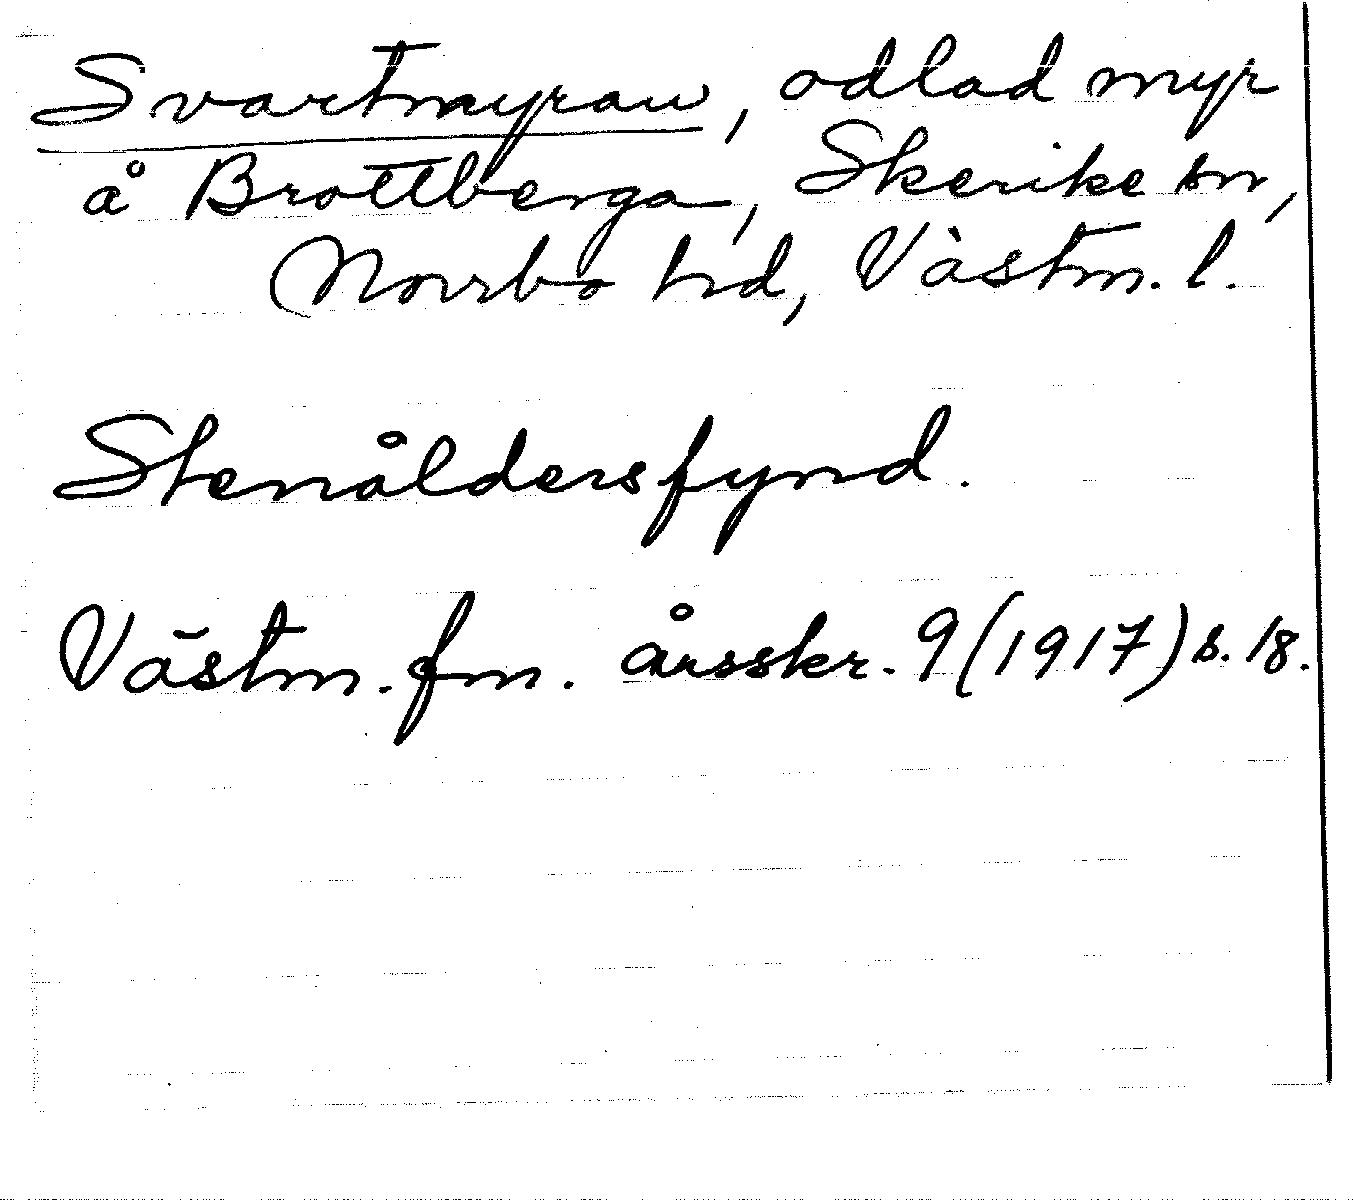 Svartmyran, odlad myr
å Brottberga, Skerike sn,
Norrbo hd, Västm. l.
Stenåldersfynd.
Västm. fm. årsskr. 9 (1917) s. 18.